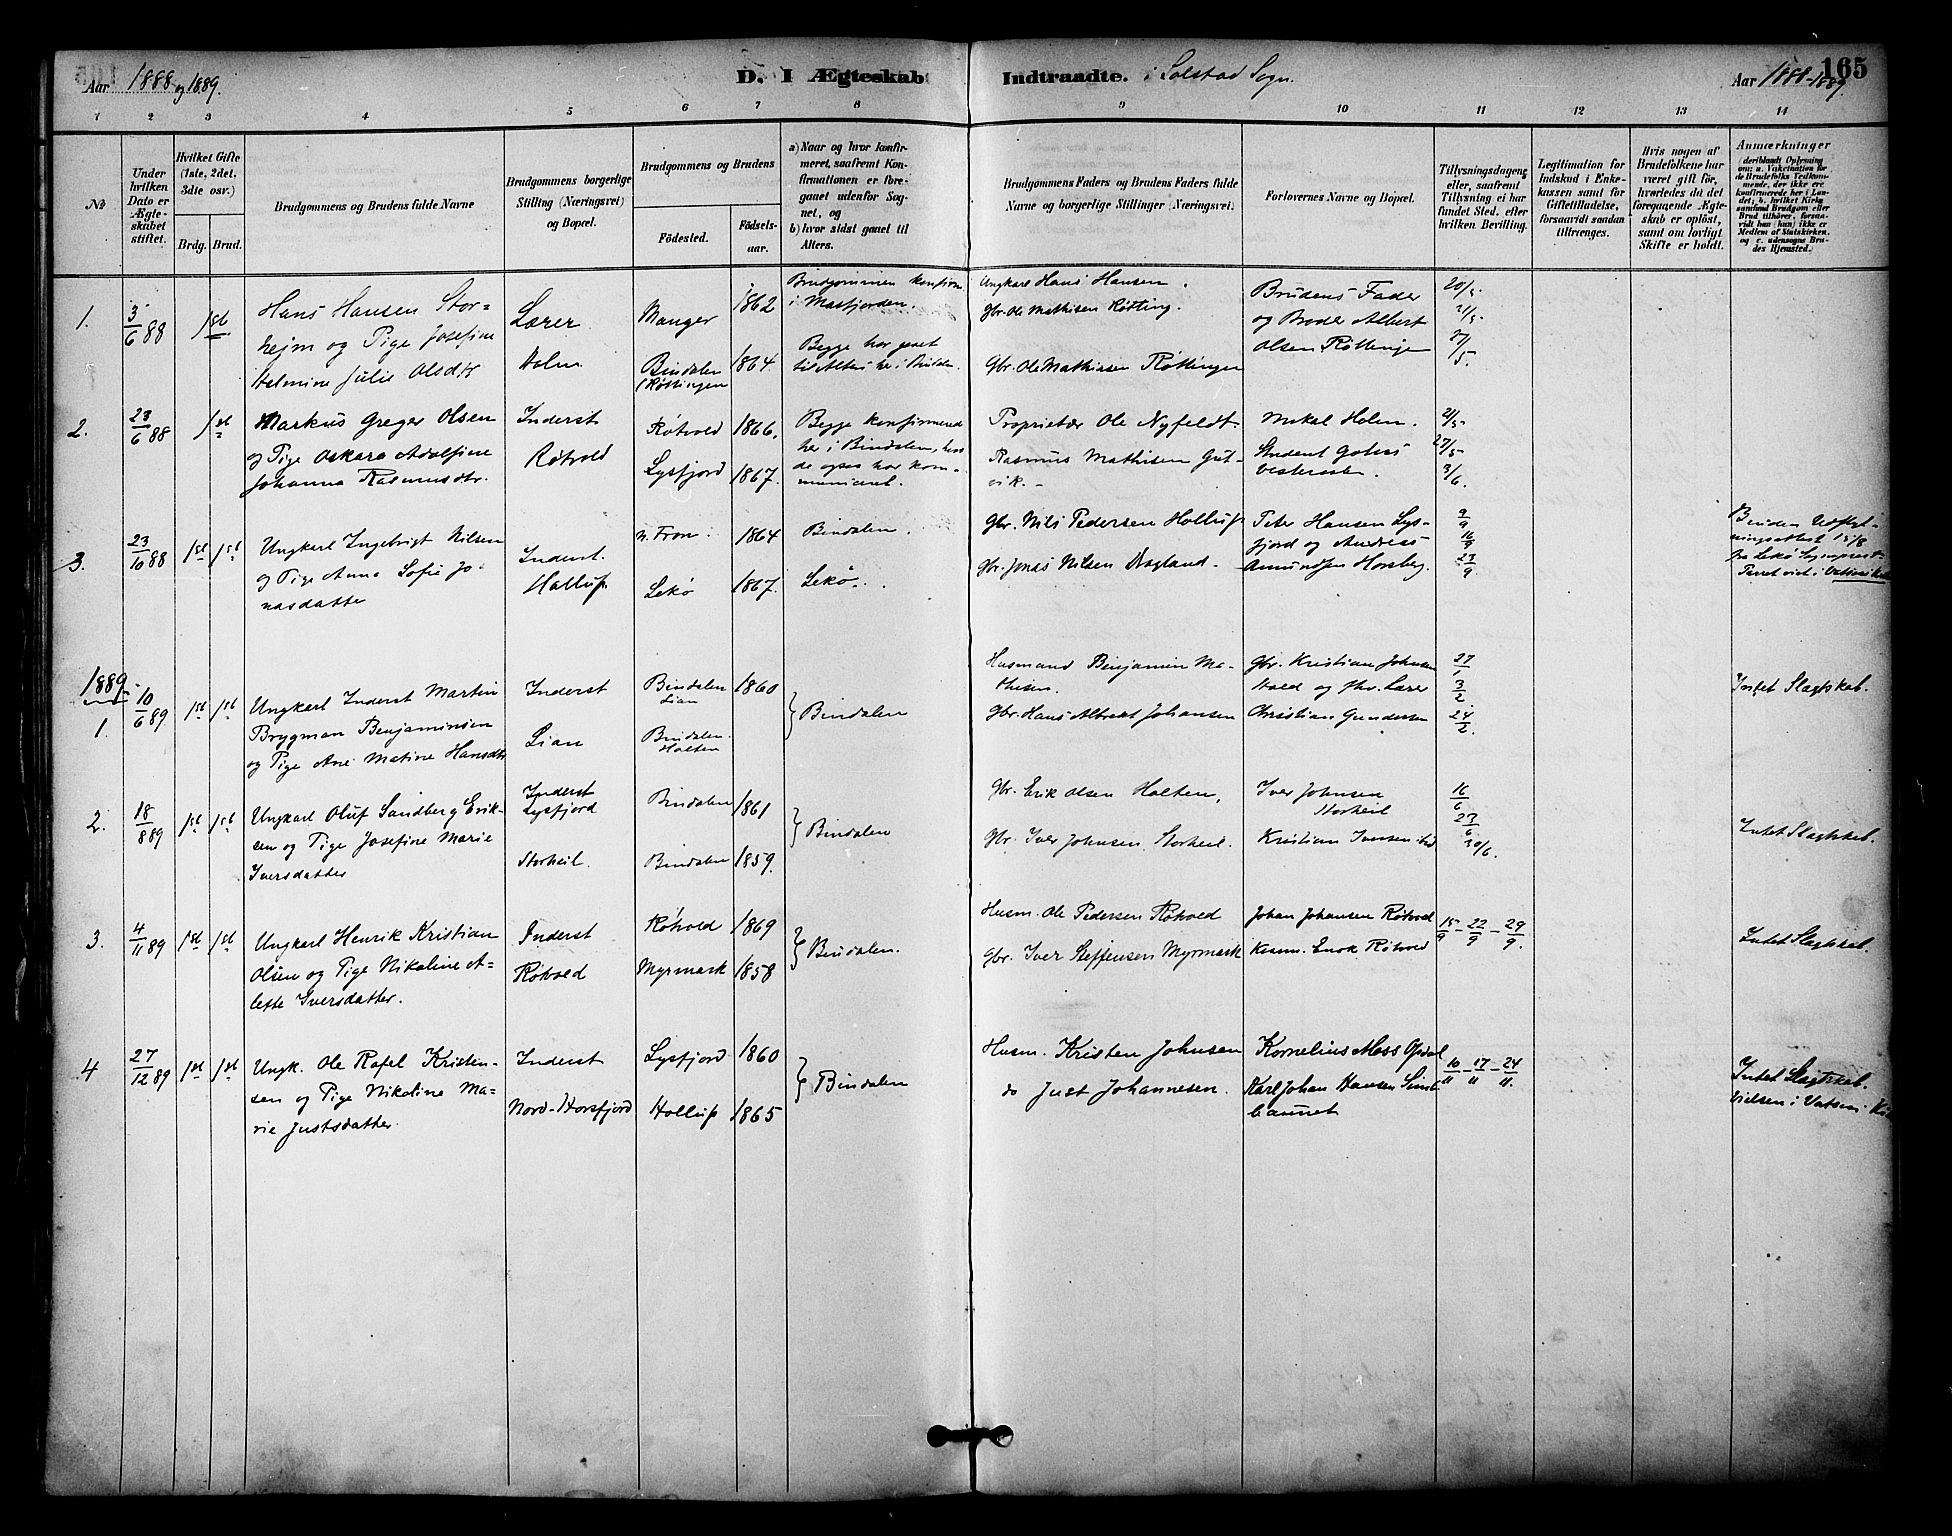 Aar 1888 og 1889.
D. I Ægteskab Indtraadte. i Solstad Sogn.
Aar 1888-1889.
165
1 2 3 4 5 6 7 8 9 10 11 12 13 14
No
Under hvilken Dato er Ægteskabet stiftet.
Hvilket Gifte (1ste, 2det, 3die osv.)
Brdg. Brud.
Brudgommens og Brudens fulde Navne
Brudgommens borgerlige Stilling (Næringsvei) og Bopæl.
Brudgommens og Brudens
Födested.
Födselsaar.
a) Naar og hvor konfirmeret, saafremt Konfirmationen er foregaaet udenfor Sognet, og
b) hvor sidst gaaet til Alters.
Brudgommens Faders og Brudens Faders fulde Navne og borgerlige Stillinger (Næringsvei.
Forlovernes Navne og Bopæl.
Tillysningsdagene, eller, saafremt Tillysning ei har fundet Sted, efter hvilken Bevilling.
Legitimation for Indskud i Enkekassen samt for Giftetilladelse, forsaavidt saadan tiltrænges.
Hvis nogen af Brudefolkene har været gift før, hvorledes da det foregaaende Ægteskab er opløst, samt om lovligt Skifte er holdt.
Anmærkninger
(deriblandt Oplysning om: a. Vakcination for de Brudefolks Vedkommende, der ikke ere konfirmerede her i Landet; b. hvilket Kirkesamfund Brudgom eller Brud tilhörer, forsaavidt han (hun) ikke er Medlem af Statskirken, og c. udensogns Brudes Hjemsted.
1. 3/6 88 1st
Hans Hansen Stor-
hejm og Pige Josefine
Helmine Julie Olsdtr
Lærer
Holm
Manger 1862
Bindalen 1864
(Røttingen
Brudgommen konfirm
i Masfjorden.
Begge har gaaet
til Alters her i Bindalen.
Ungkarl Hans Hansen.
Gbr. Ole Mathisen Røtting.
Gbr. Ole Mathiesen Røttingen
Brudens Fader
og Broder Albert
Olsen Røttingen
20/5 21/5 27/5
2. 23/6 88 1st
Markus Greger Olsen
og Pige Oskara Adolfine
Johanna Rasmusdtr.
Inderst
Røtvold
Røtvold 1866.
Lysfjord 1867.
Begge konfirmered
her i Bindalen, hvor
de ogsaa har kom-
municeret.
Proprietær Ole Nyfeldt.
Rasmus Mathisen Gut-
vik.
Mikal Holm.
Student
21/5 27/5 3/6.
3. 23/10 88 1st 1st
Ungkarl Ingebrigt Nilsen
og Pige Anna Sofie Jo-
nasdatter
Inderst.
Hallup
n. Fron. 1864
Lekø 1867.
Bindalen.
Lekø.
Gbr. Nils Pedersen Hollup
Gbr. Jonas Nilsen
Peter Hansen Lys-
fjord og Andreas
Amundsen Horsberg.
9/9 16/9 23/9
Bruden Udflyt-
ningsattest 15/8
fra Lekø Sogneprest
Parret viet i
1889.
1. 10/6 89 1st 1st
Ungkarl Inderst Martin
Brygman Benjaminsen
og Pige Ane Matine Hansdtr
Inderst
Lian
Bindalen 1860
Lian
Bindalen
Holten
Bindalen
Husmand Benjamin Ma-
thisen.
Gbr. Hans Albrekt Johansen
Gbr. Kristian Johnsen
Vold og fhv. Lærer
Christian Gundersen
27/1 3/2 24/2.
Intet Slagtskab.
2. 18/8 89 1st 1st
Ungkarl Oluf Sandberg Erik-
sen og Pige Josefine Marie
Iversdatter
Inderst
Lysfjord
Storheil.
Bindalen 1861
Bindalen 1859.
Bindalen
Gbr. Erik Olsen Holten,
Gbr. Iver Johnsen Storheil.
Iver Johnsen
Storheil
Kristian Iversen ibid
16/6 23/6 30/6.
Intet Slagtskab.
3. 4/11 89 1st 1st
Ungkarl Henrik Kristian
Olsen og Pige Nikoline A-
lette Iversdatter.
Inderst
Røtvold
Røtvold 1869
Myrmark 1858
Bindalen.
Husm. Ole Pedersen Røtvold
Gbr. Iver Steffensen Myrmark
Johan Johansen Røtvold
Husm. Enok Røtvold
15/9 - 22/9 - 29/9.
Intet Slagtskab.
4 27/12 89 1st 1st
Ungk. Ole Rafel Kristen-
sen og Pige Nikoline Ma-
rie Justsdatter.
Inderst
Nord-Horsfjord
Lysfjord 1860
Hollup 1865
Bindalen
Husm. Kristen Johnsen
do Just Johannesen.
Kornelius Moss Opdal
Karl Johan Hansen
10/11 - 17/11 - 24/11.
Intet Slagtskab.
Vielsen i Vatsen.